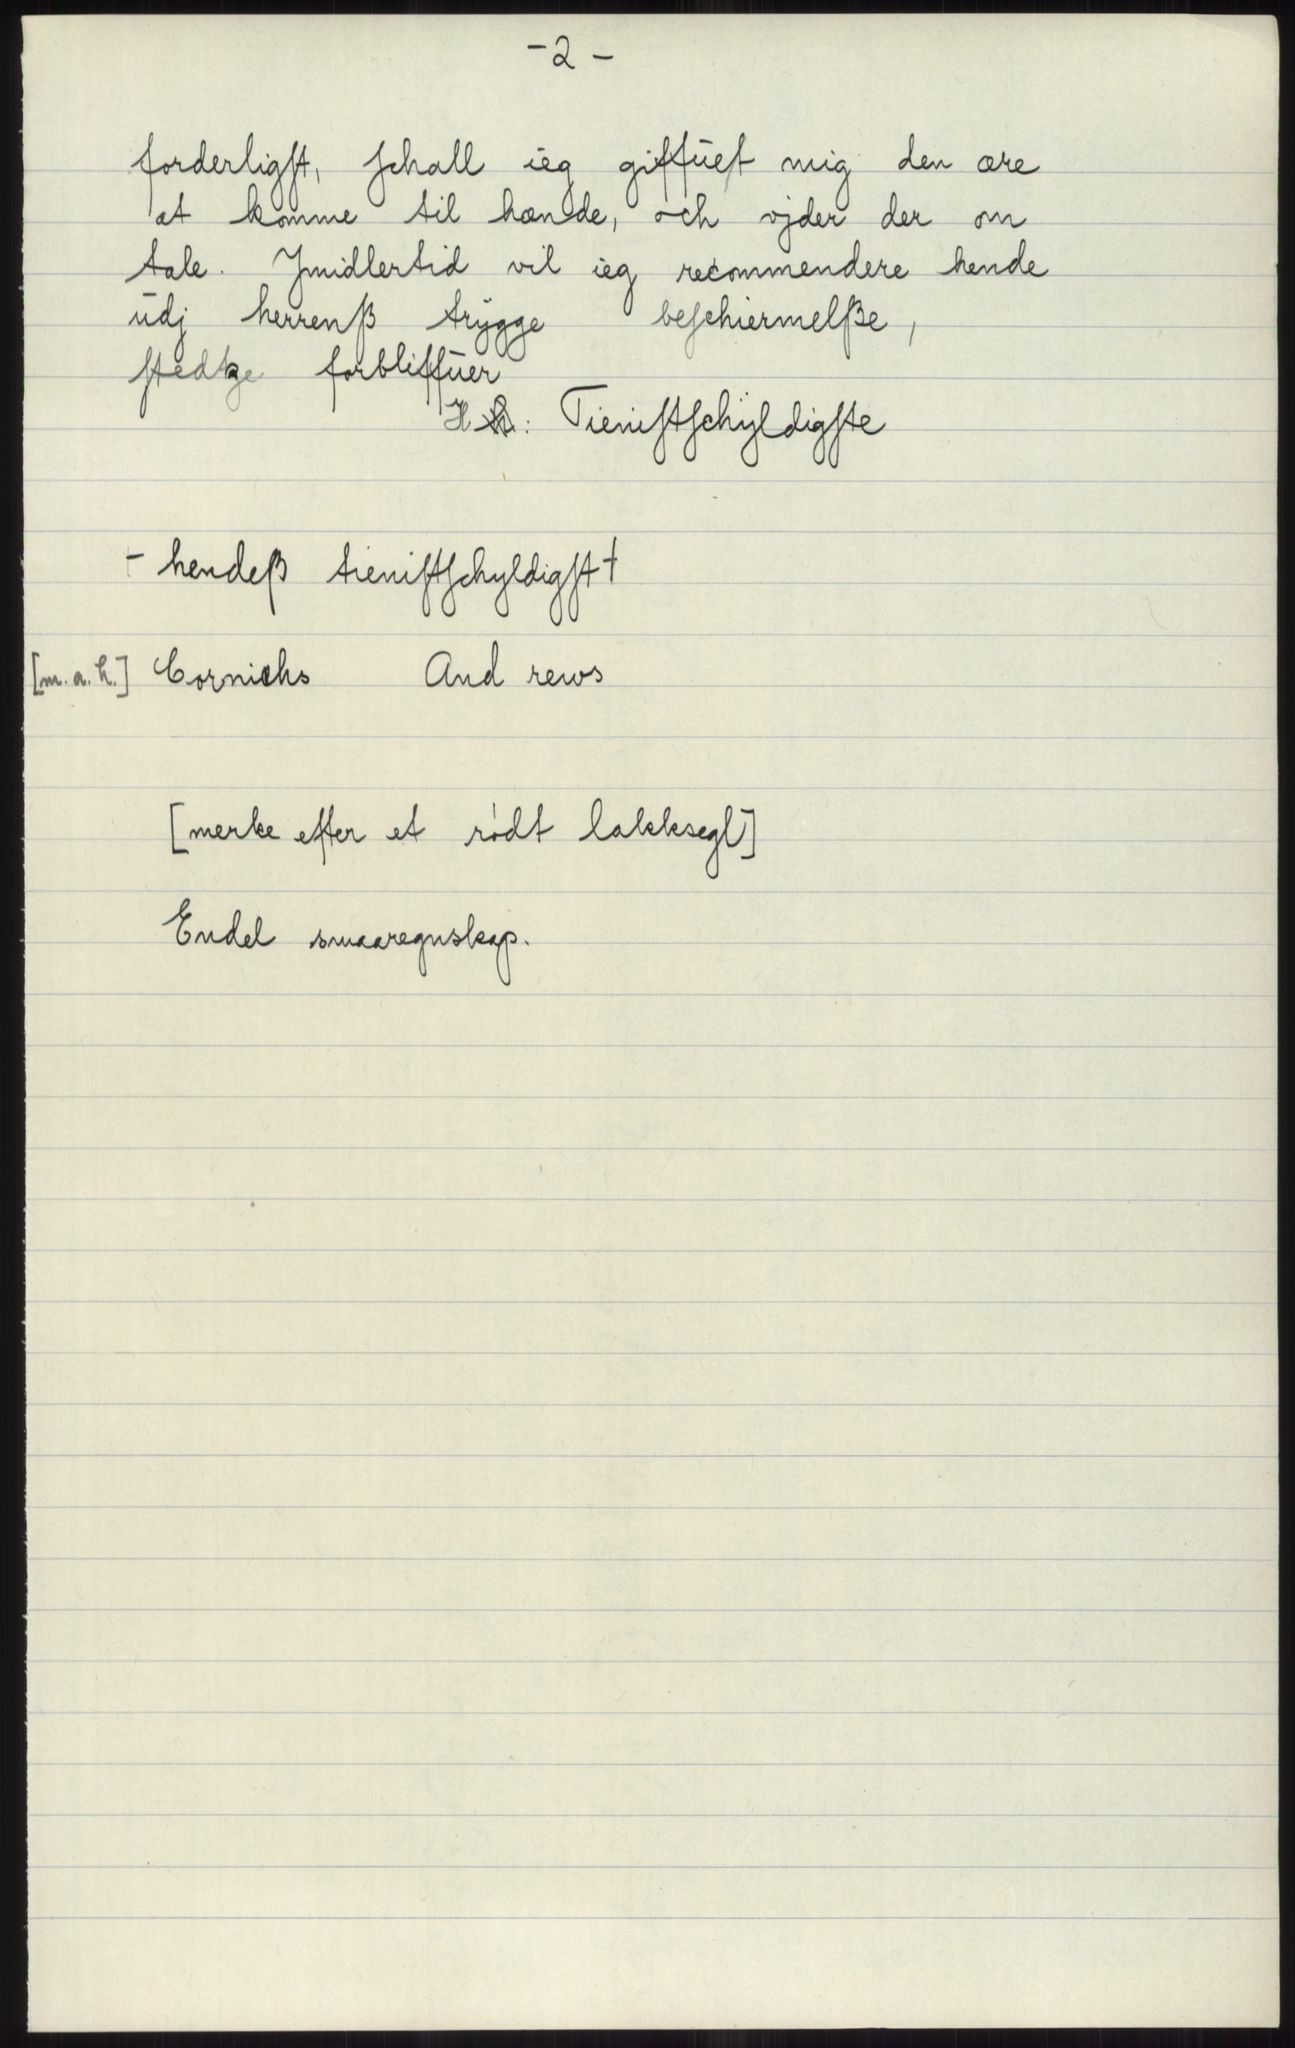 -2-
forderligſt, ſchall ieg giffueſ mig den ære
at komme til hænde, och vjder der om
tale. Jmidlertid vil ieg recommendere hende
ūdj herrenß trÿgge beſchiermelße,
ſtedtze forbliffūer
H: Tieniſtſchÿldigſte
- hendeß tieniſtſchyldigſt +
[m.a.h.] Cornichs And rews
[merke efter et rødt lakksegl]
Endel smaaregnskap.